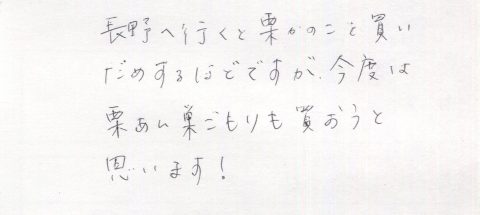 長野へ行くと栗かのこを買い
だめするほどですが、今度は
栗あん巣ごもりも買おうと
思います！